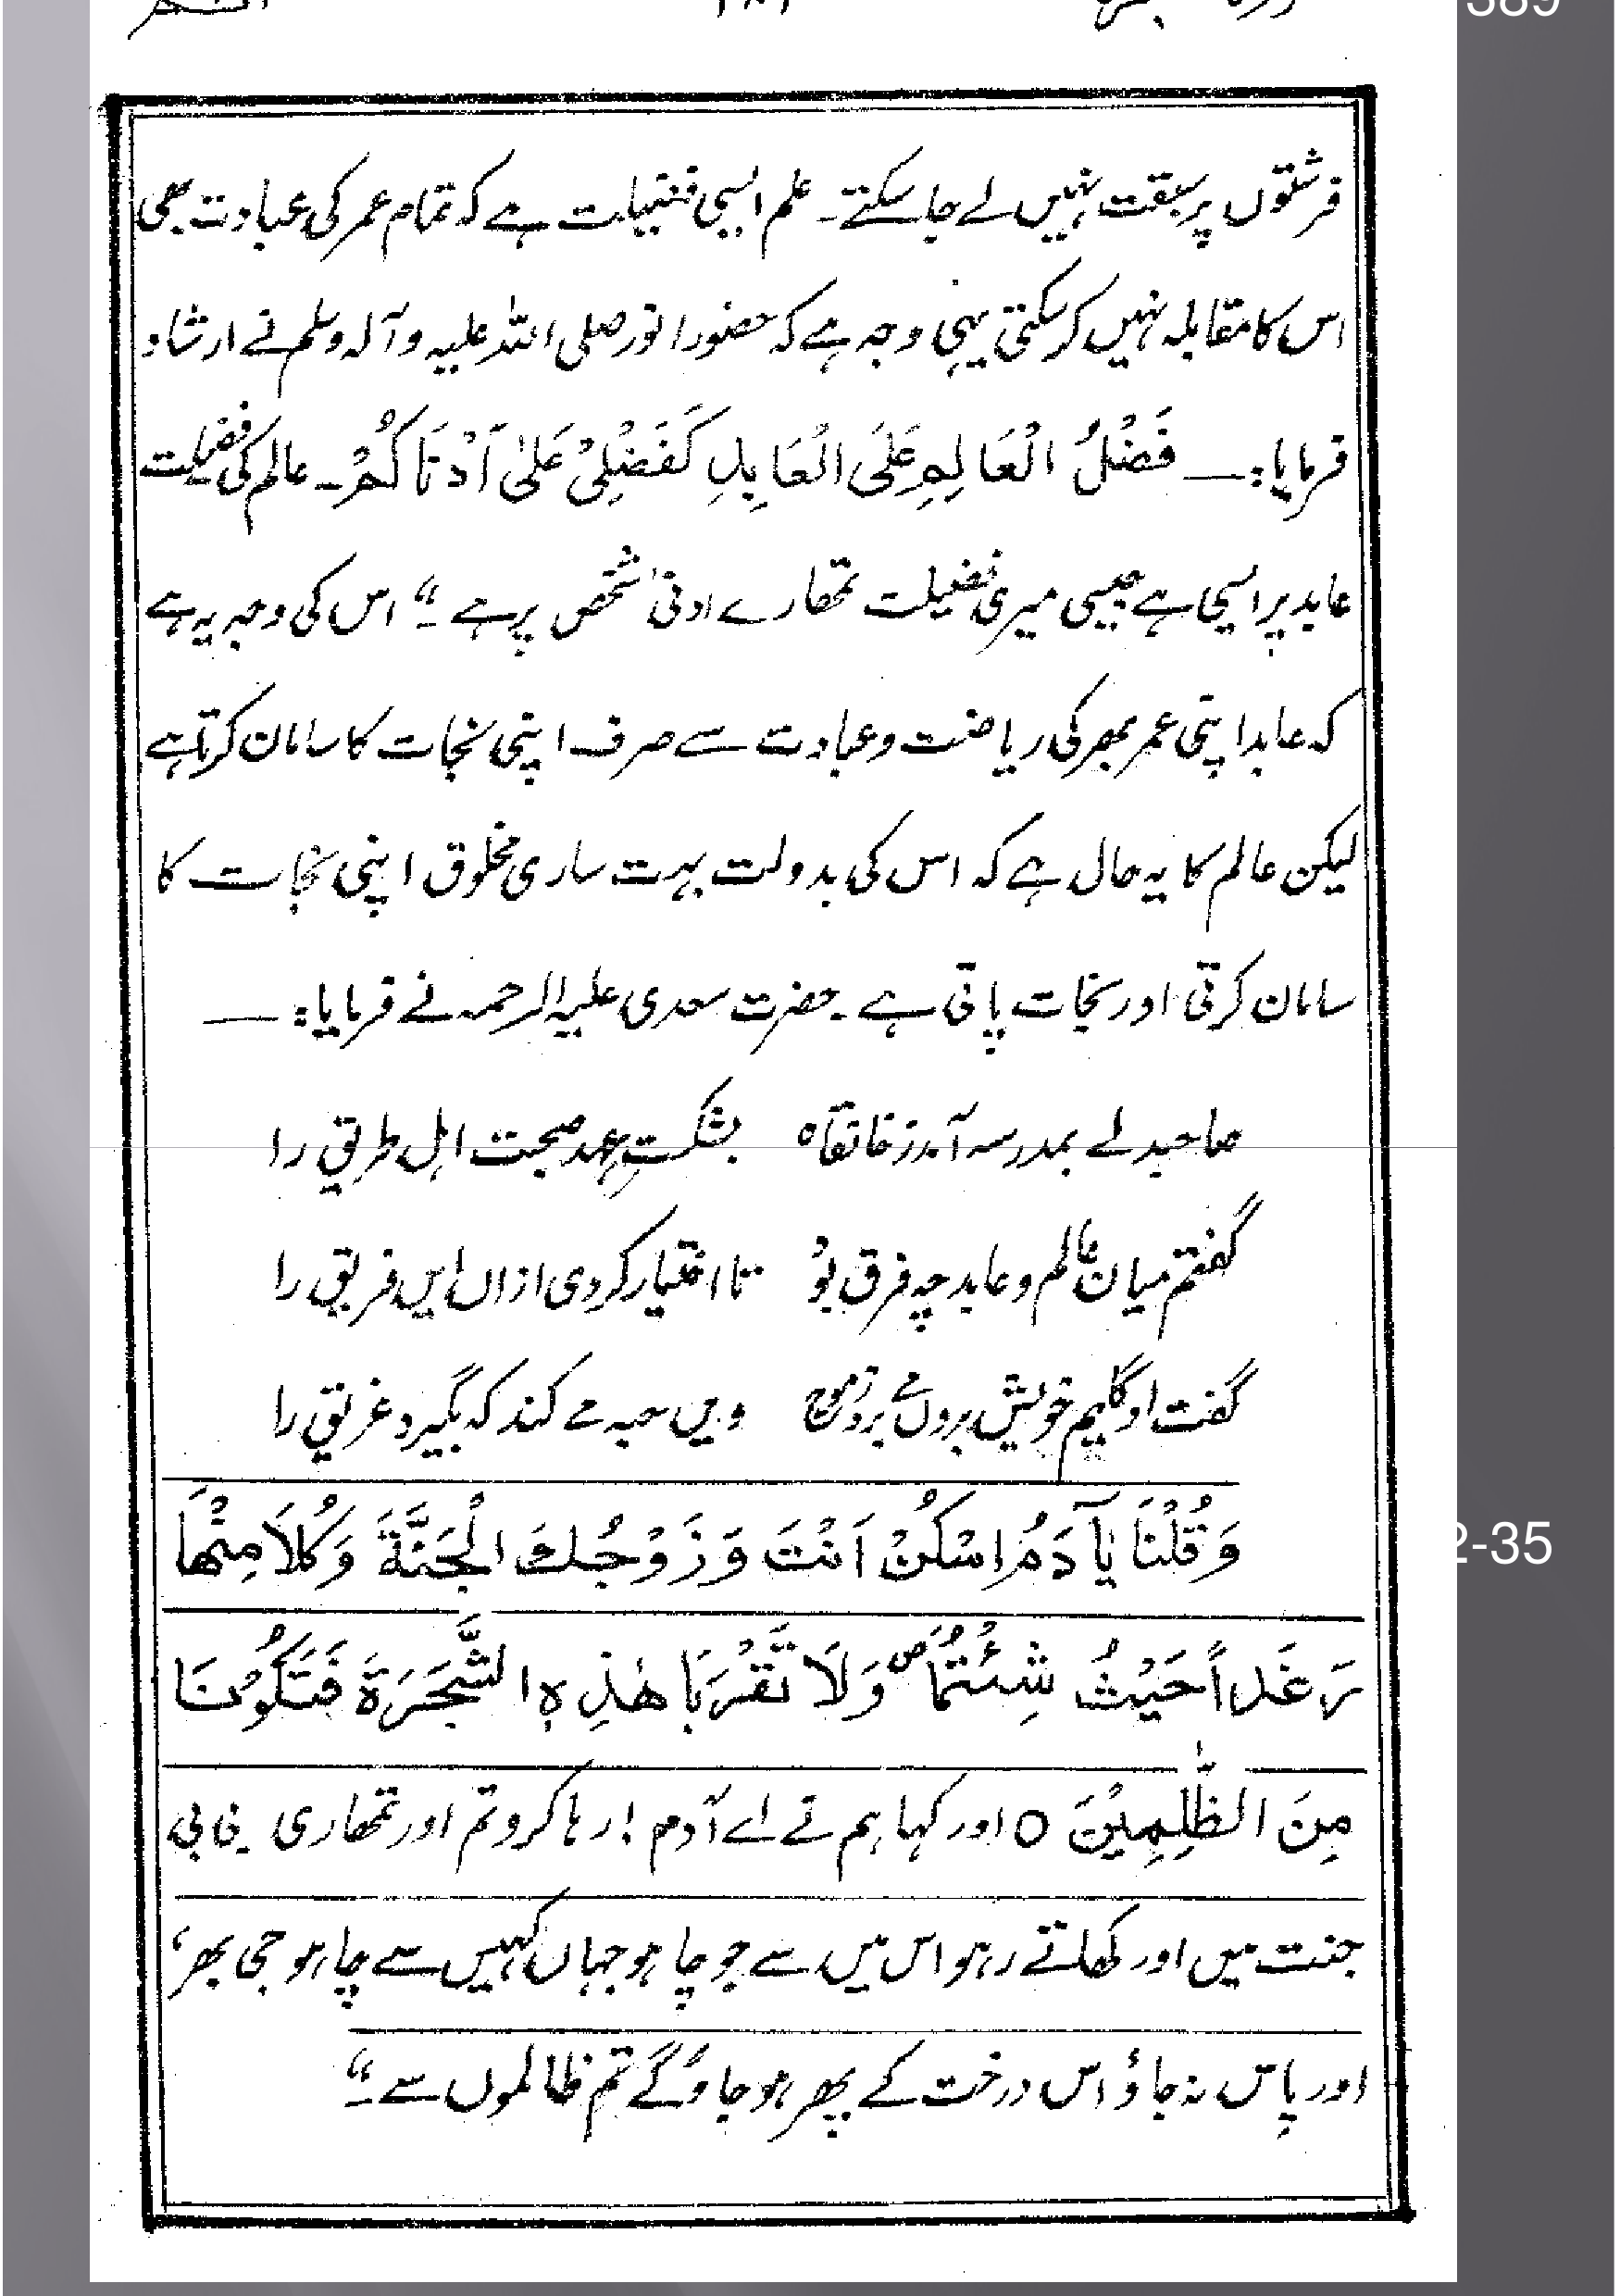 389
فرشتوں پر سبقت نہیں لے جا سکتے۔ علم ایسی فضیلت ہے کہ تمام عمر کی عبادت بھی
اس کا مقابلہ نہیں کر سکتی یہی وجہ ہے کہ حضور انور صلی اللہ علیہ وآلہ وسلم نے ارشاد
فرمایا:— فَضْلُ الْعَالِمِ عَلَى الْعَابِدِ كَفَضْلِىْ عَلىٰ اَدْنَاكُمْ۔ عالم کی فضیلت
عابد پر ایسی ہے جیسی میری فضیلت تمھارے ادنیٰ شخص پر ہے۔“ اس کی وجہ یہ ہے
کہ عابد اپنی عمر بھر کی ریاضت و عبادت سے صرف اپنی نجات کا سامان کرتا ہے
لیکن عالم کا یہ حال ہے کہ اس کی بدولت بہت ساری مخلوق اپنی نجات کا
سامان کرتی اور نجات پاتی ہے۔ حضرت سعدی علیہ الرحمہ نے فرمایا:—
صاحبدلے بمدرسہ آمد ز خانقاہ بشکست عہد صحبت اہل طریق را
گفتم میان عالم و عابد چہ فرق بُو تا اختیار کردی ازاں ایں فریق را
گفت او گلیم خویش بروں مے برد ز موج ویں جہد مے کند کہ بگیرد غریق را
وَقُلْنَا يٰآدَمُ اسْكُنْ اَنْتَ وَزَوْجُكَ الْجَنَّةَ وَكُلَا مِنْهَا
2-35
رَغَداً حَيْثُ شِئْتُمَا ص وَلَا تَقْرَبَا هٰذِهِ الشَّجَرَةَ فَتَكُوْنَا
مِنَ الظّٰلِمِيْنَ ○ اور کہا ہم نے اے آدم! رہا کرو تم اور تمھاری بی بی
جنت میں اور کھاتے رہو اس میں سے جو چاہو جہاں کہیں سے چاہو جی بھر،
اور پاس نہ جاؤ اس درخت کے پھر ہو جاؤ گے تم ظالموں سے۔“